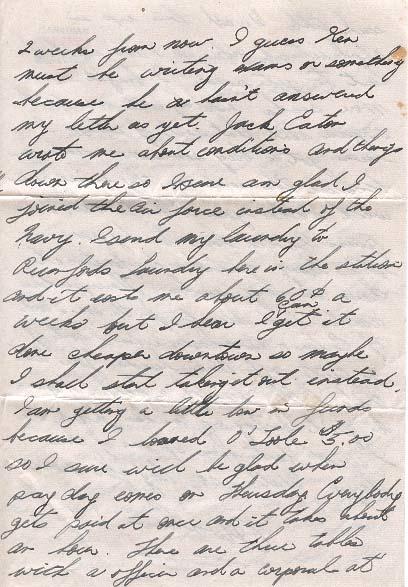 2 weeks from now. I guess Ken
must be writing exams or something
because he hasn't answered
my letter as yet. Jack Eaton
wrote me about conditions and things
down there so I sure am glad I
joined the Air force instead of the
Navy. I send my laundry to
laundry here in the station
and it costs me about 60¢ a
weeks but I hear I can get it
done cheaper downtown so maybe
I shall start taking it out instead.
I am getting a little low in funds
because I loaned O'Toole $5.00
so I sure will be glad when
pay day comes on Thursday. Everybody
gets paid at once and it takes about
an hour. There are three tables
with a officer and a corporal at